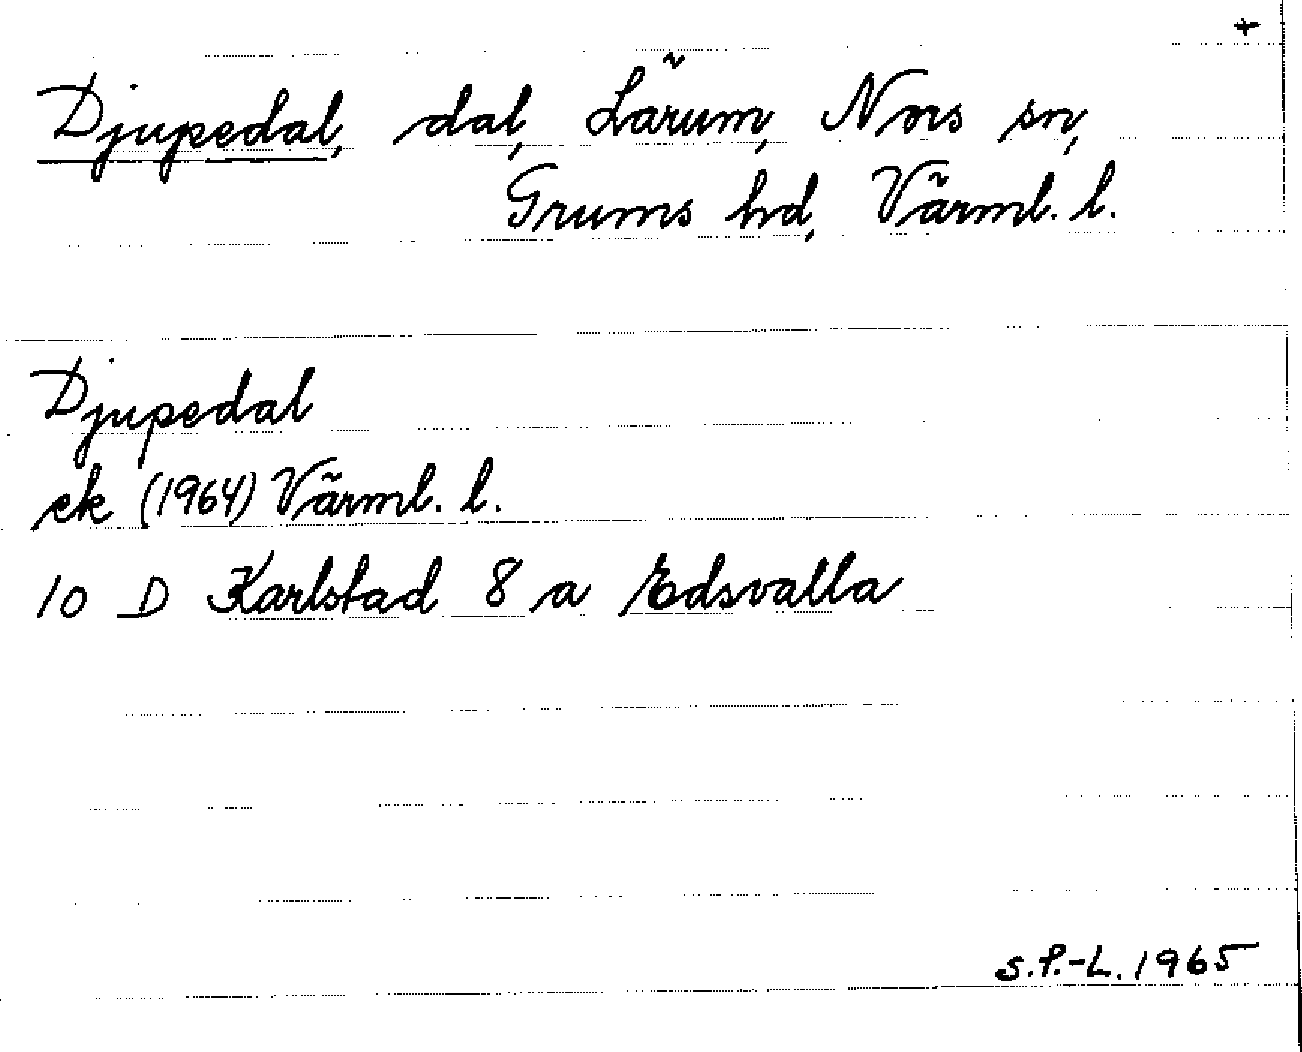 +
Djupedal, dal, Lärum, Nors sn,
Grums hd, Värml. l.
Djupedal
ek (1964) Värml. l.
10 D Karlstad 8 a Edsvalla
S.P.-L. 1965